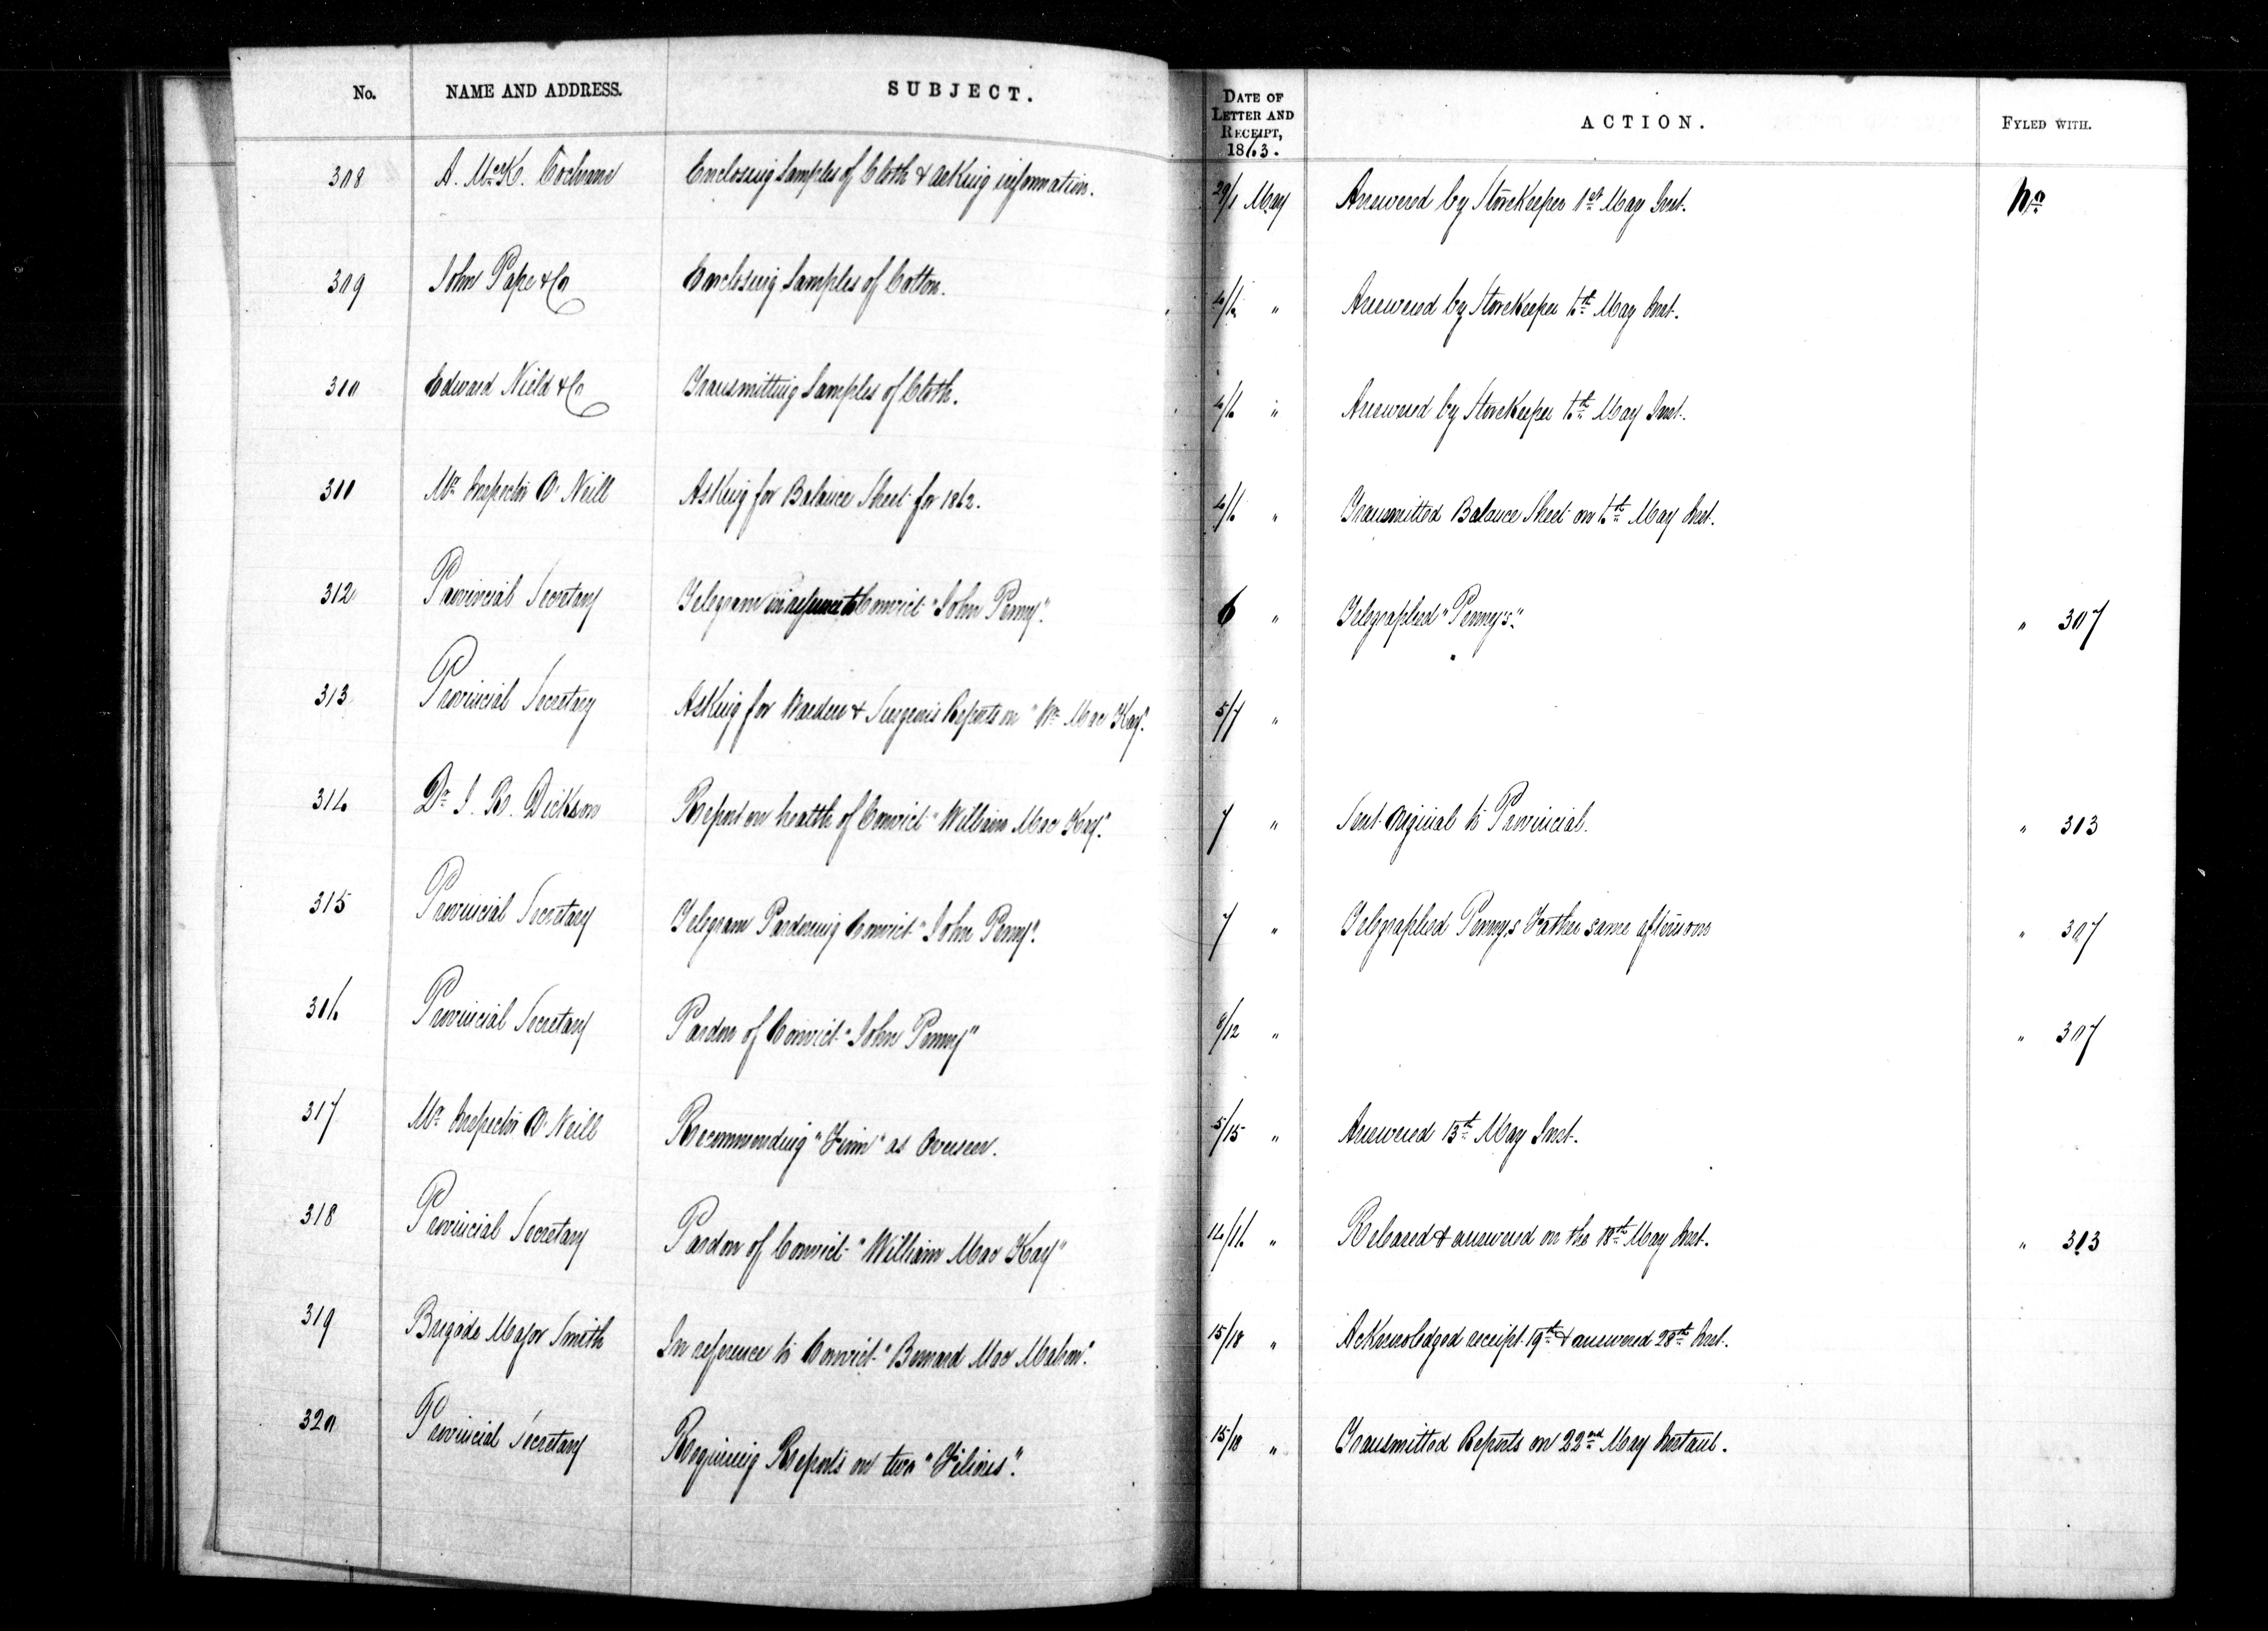 No. NAME AND ADDRESS. SUBJECT. DATE OF LETTER AND RECEIPT, 1863. ACTION. FYLED WITH.
308 A. McK. Cochrane Enclosing Samples of Cloth & asking information. 29/1 May Answered by StoreKeeper 1st May Inst. No
309 John Pape & Co Enclosing Samples of Cotton. 4/6 " Answered by StoreKeeper 6th May Inst.
310 Edward Nield & Co Transmitting Samples of Cloth. 4/6 " Answered by StoreKeeper 6th May Inst.
311 Mr Inspector O'Neill Asking for Balance Sheet for 1862. 4/6 " Transmitted Balance Sheet on 6th May Inst.
312 Provincial Secretary Telegram in reference to Convict "John Penny". 6 " Telegraphed "Penny's". " 307
313 Provincial Secretary Asking for Warden & Surgeons Reports on "Wm Mac Kay". 5/7 "
314 Dr J. R. Dickson Report on health of Convict "William Mac Kay". 7 " Sent Original to Provincial. " 313
315 Provincial Secretary Telegram Pardoning Convict "John Penny". 7 " Telegraphed Penny's Father same afternoon " 307
316 Provincial Secretary Pardon of Convict "John Penny" 8/12 " " 307
317 Mr Inspector O'Neill Recommending "Finn" as Overseer. 5/15 " Answered 15th May Inst.
318 Provincial Secretary Pardon of Convict "William Mac Kay" 14/16 " Released & answered on the 18th May Inst. " 313
319 Brigade Major Smith In reference to Convict "Bernard Mac Mahon". 15/18 " Acknowledged receipt 19th & answered 28th Inst.
320 Provincial Secretary Requiring Reports on two "Filions". 15/18 " Transmitted Reports on 22nd May Instant.